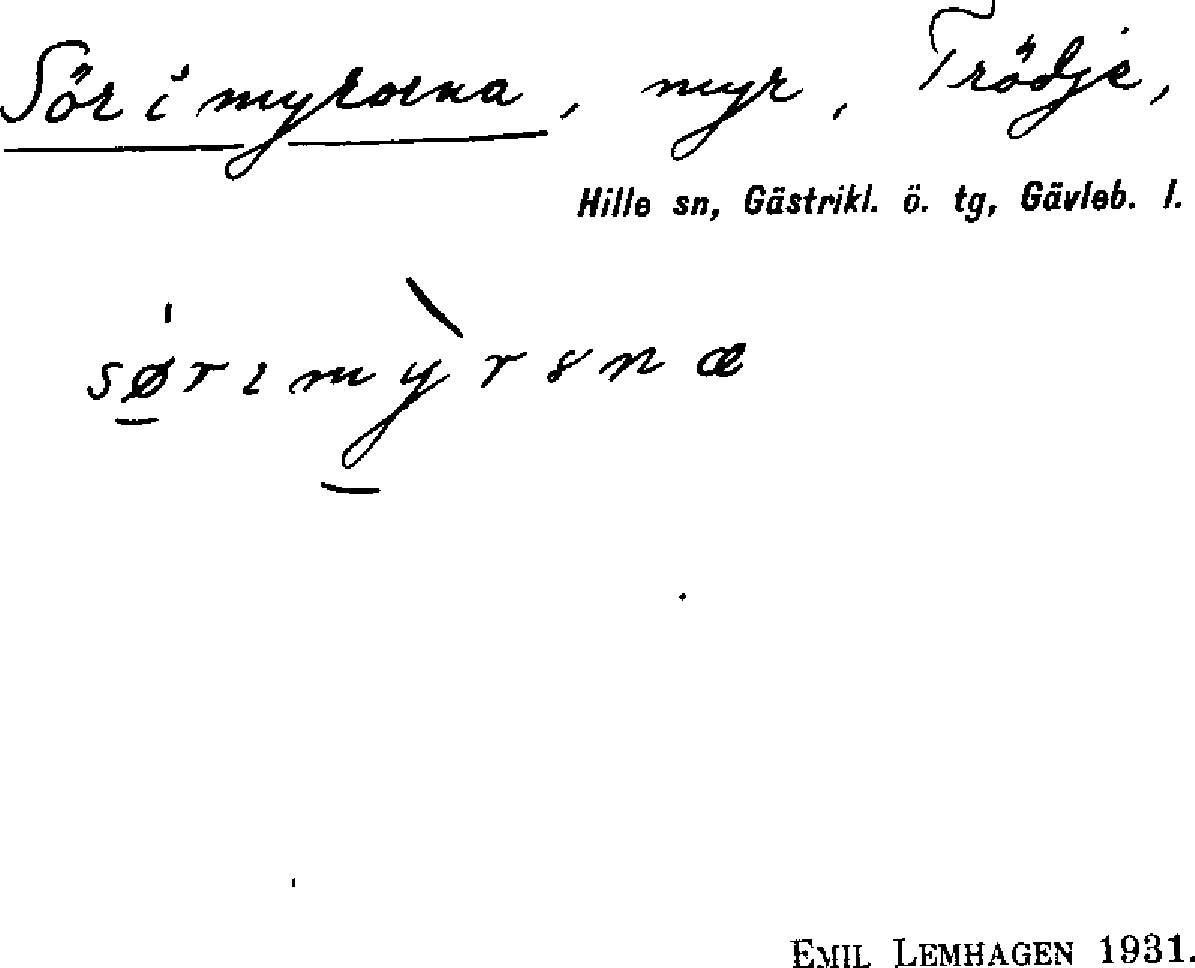 Sör i myrorna, myr, Trödje,
Hille sn, Gästrikl. ö. tg, Gävleb. l.
sørɩmyrsnæ
EMIL LEMHAGEN 1931.